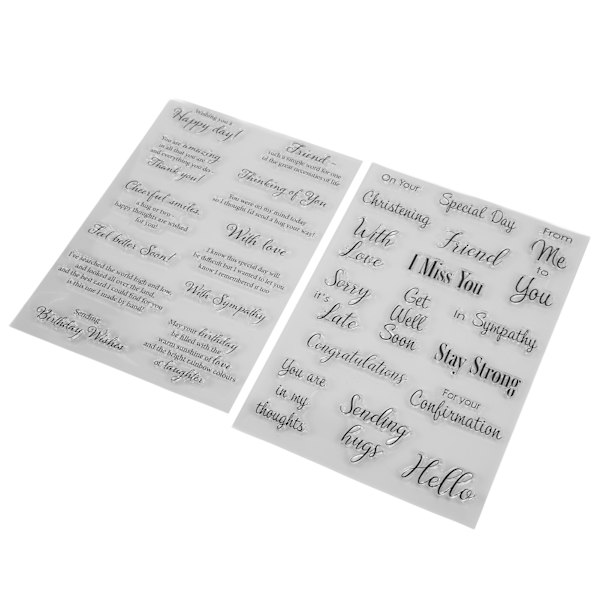 Wishing you a
Happy day!
You are amazing
in all that you are
and everything you do
Thank you!
Cheerful smiles,
a hug or two -
happy thoughts are wished
for you!
Feel better Soon!
I've searched the world high and low,
and looked all over the land
and the best card I could find for you
is this one I made by hand!
Sending
Birthday Wishes
Friend -
such a simple word for one
of the great necessities of life
Thinking of You
You were on my mind today
and thought I'd send a hug your way!
With love
I know this special day will
be difficult but I wanted to let you
know I remembered it too
With Sympathy
May your birthday
be filled with the
warm sunshine of love
and the bright rainbow colours
of laughter
On Your
Christening
Special Day
From
Me
to
You
With
Love
Friend
I Miss You
Sorry
it's
Late
Get
Well
Soon
in Sympathy
Stay Strong
Congratulations
You are
in my
thoughts
For your
Confirmation
Sending
hugs
Hello